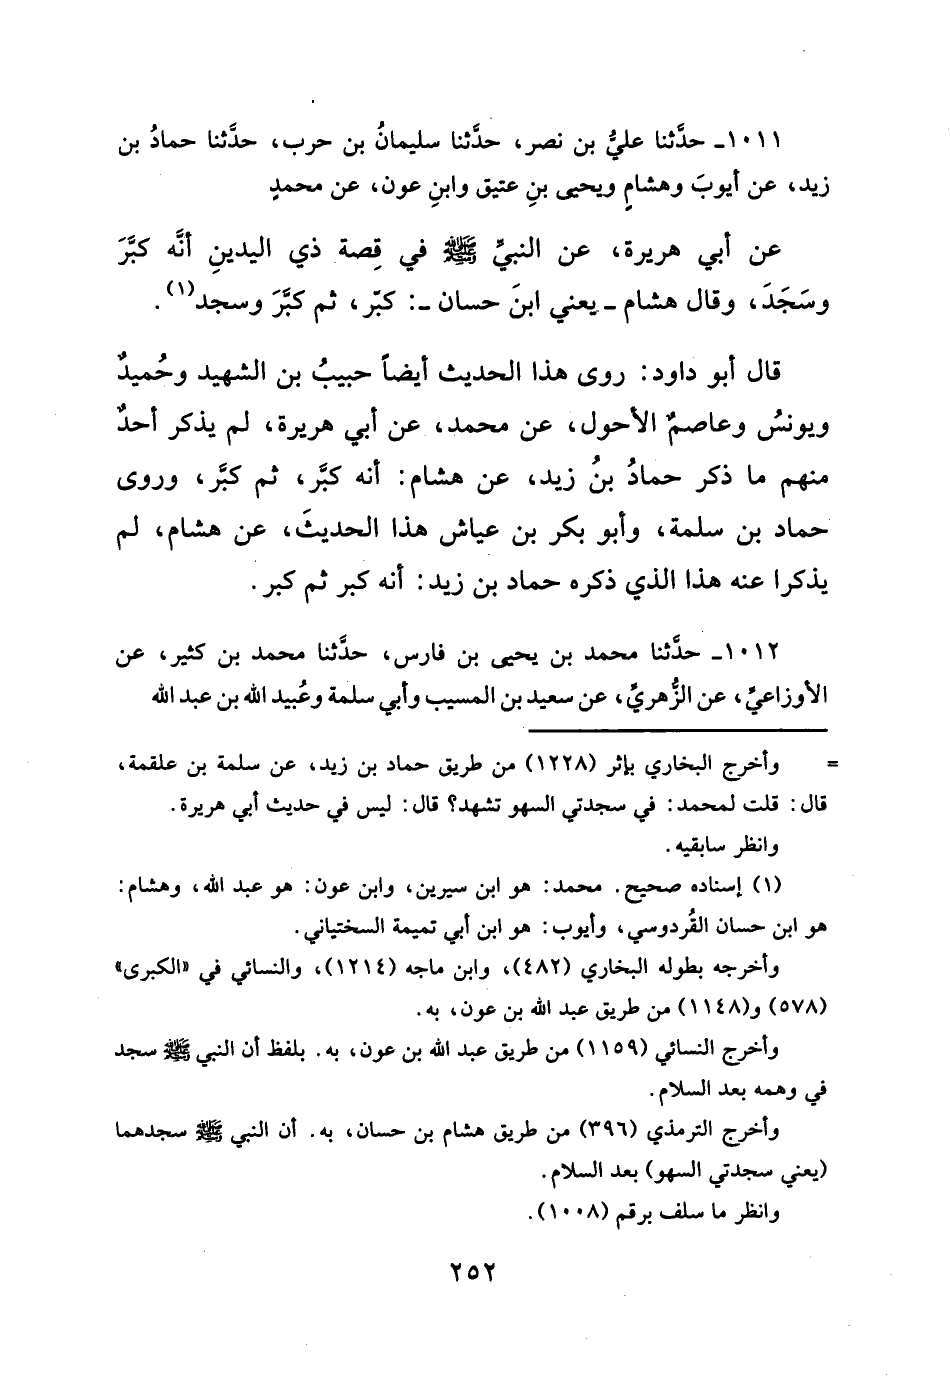 ١٠١١ـ حدَّثنا عليُّ بن نصر، حدَّثنا سليمانُ بن حرب، حدَّثنا حمادُ بن
زيد، عن أيوبَ وهشامٍ ويحيى بنِ عتيق وابنِ عون، عن محمدٍ
عن أبي هريرة، عن النبيِّ ﷺ في قِصة ذي اليدينِ أنَّه كبَّرَ
وسَجَدَ، وقال هشام ـ يعني ابنَ حسان ـ: كبّر، ثم كبَّرَ وسجد(١).
قال أبو داود: روى هذا الحديث أيضاً حبيبُ بن الشهيد وحُميدٌ
ويونسُ وعاصمٌ الأحول، عن محمد، عن أبي هريرة، لم يذكر أحدٌ
منهم ما ذكر حمادُ بنُ زيد، عن هشام: أنه كبَّر، ثم كبَّر، وروى
حماد بن سلمة، وأبو بكر بن عياش هذا الحديثَ، عن هشام، لم
يذكرا عنه هذا الذي ذكره حماد بن زيد: أنه كبر ثم كبر.
١٠١٢ـ حدَّثنا محمد بن يحيى بن فارس، حدَّثنا محمد بن كثير، عن
الأوزاعيِّ، عن الزُّهريِّ، عن سعيد بن المسيب وأبي سلمة وعُبيد الله بن عبد الله
= وأخرج البخاري بإثر (١٢٢٨) من طريق حماد بن زيد، عن سلمة بن علقمة،
قال: قلت لمحمد: في سجدتي السهو تشهد؟ قال: ليس في حديث أبي هريرة.
وانظر سابقيه.
(١) إسناده صحيح. محمد: هو ابن سيرين، وابن عون: هو عبد الله، وهشام:
هو ابن حسان القُردوسي، وأيوب: هو ابن أبي تميمة السختياني.
وأخرجه بطوله البخاري (٤٨٢)، وابن ماجه (١٢١٤)، والنسائي في «الكبرى»
(٥٧٨) و(١١٤٨) من طريق عبد الله بن عون، به.
وأخرج النسائي (١١٥٩) من طريق عبد الله بن عون، به. بلفظ أن النبي ﷺ سجد
في وهمه بعد السلام.
وأخرج الترمذي (٣٩٦) من طريق هشام بن حسان، به. أن النبي ﷺ سجدهما
(يعني سجدتي السهو) بعد السلام.
وانظر ما سلف برقم (١٠٠٨).
٢٥٢